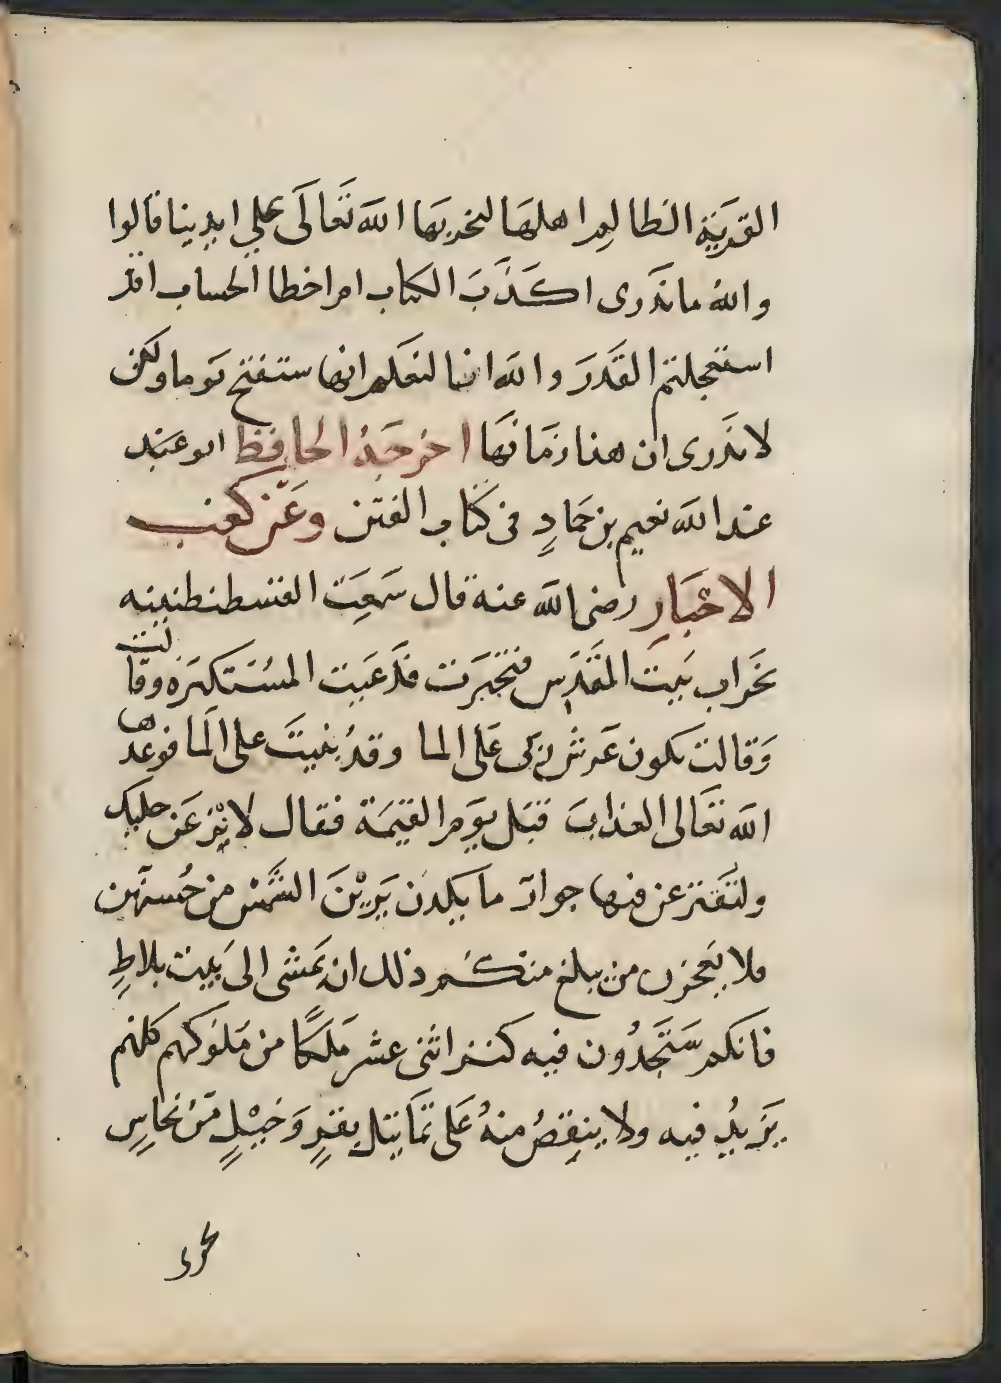 القرية الظالم اهلها ليخربها الله تعالى على ايدينا قالوا
والله ما ندرى اكذب الكتاب ام اخطا الحساب ام
استعجلتم القدر والله انا لنعلم انها ستفتح يوما ولكن
لا ندرى ان هذا زمانها اخرجه الحافظ ابو عبد
عبد الله نعيم بن حماد فى كتاب الفتن وعن كعب
الاحبار رضى الله عنه قال سمعت القسطنطنينه
بخراب بيت المقدس فتجبرت فدعيت المستكبره وقا لت
وقالت يكون عرش ربى على الما وقد بنيت على الما فوعدها
الله تعالى العذاب قبل يوم القيمة فقال لانزعن حليك
ولتفترعن فيها جوار ما يكدن يرين الشمس من حسنهن
فلا يعجزن من يبلغ منكم ذلك ان يمشى الى بيت بلاط
فانكم ستجدون فيه كنز اثنى عشر ملكا من ملوكهم كلهم
يزيد فيه ولا ينقص منه على تماثيل بقر وخيل من نحاس